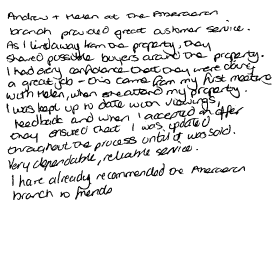 Andrew + Helen at the Amersham
branch provided great customer service.
As I lived away from the property, they
showed possible buyers around the property.
I had every confidence that they were doing
a great job - this came from my first meeting
with Helen, when she attend my property.
I was kept up to date with viewings,
feedback and when I accepted an offer
they ensured that I was updated
throughout the process until it was sold.
Very dependable, reliable service.
I have already recommended the Amersham
branch to friends